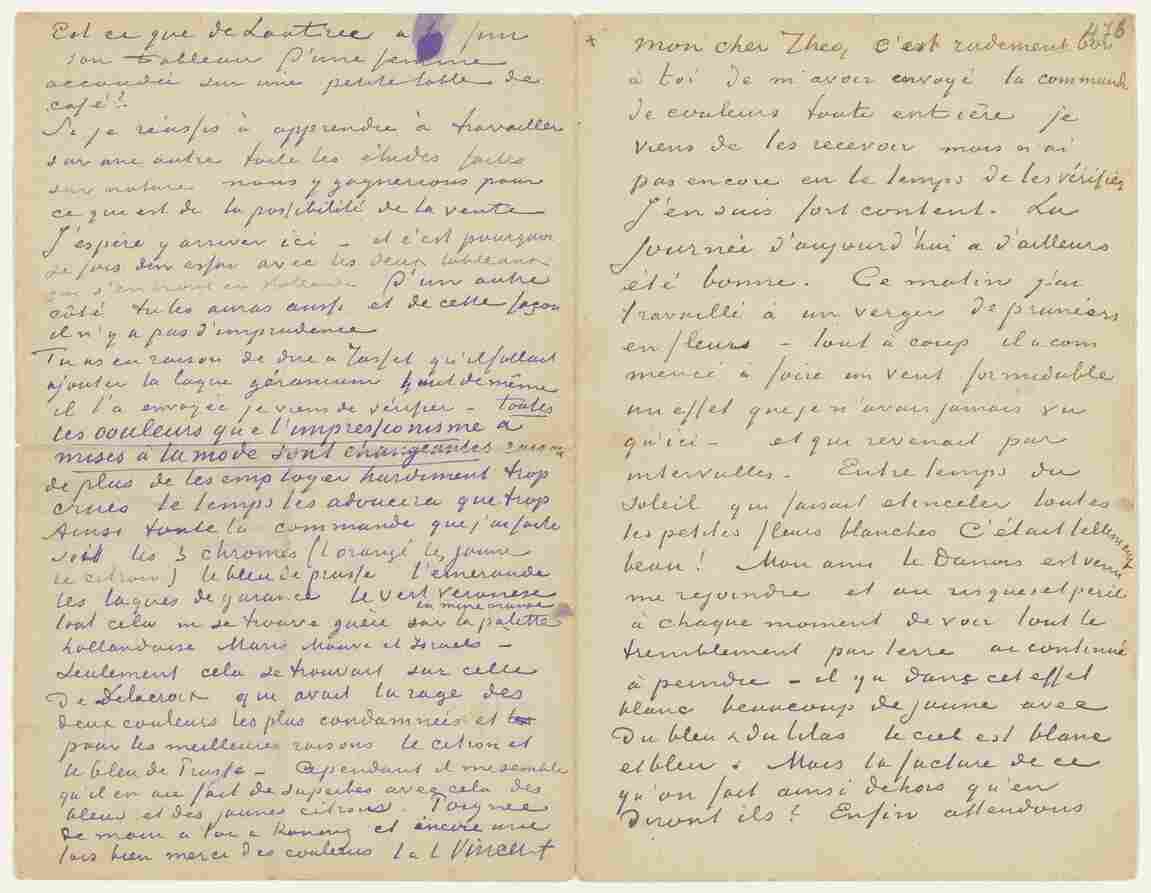 Est ce que de Lautrec a fini
son tableau d'une femme
accoudée sur une petite table de
café?
Si je réussis à apprendre à travailler
sur une autre toile les études faites
sur nature nous y gagnerions pour
ce qui est de la possibilité de la vente
J'espère y arriver ici – et c'est pourquoi
je fais un essai avec les deux tableaux
qui s'en iront en Hollande D'un autre
côté tu les auras aussi et de cette façon
il n'y a pas d'imprudence
Tu as eu raison de dire à Tasset qu'il fallait
ajouter la laque géranium tout de même
il l'a envoyée je viens de vérifier – toutes
les couleurs que l'impressionisme a
mises à la mode sont changeantes raison
de plus de les employer hardiment trop
crues le temps les adoucira que trop
Ainsi toute la commande que j'ai faite
soit les 3 chromes (l'orangé le jaune
le citron) le bleu de prusse l'émeraude
les laques de garance le vert Veronèse
la mine orange
tout cela ne se trouve guère sur la palette
hollandaise Maris Mauve et Israels –
Seulement cela se trouvait sur celle
de Delacroix qui avait la rage des
deux couleurs les plus condamnées et
pour les meilleures raisons le citron et
le bleu de Prusse – Cependant il me semble
qu'il en a fait de superbes avec cela des
bleus et des jaunes citrons. Poignée
de main à toi à Koning et encore une
fois bien merci des couleurs t. à t. Vincent
476
mon cher Theo, c'est rudement bon
à toi de m'avoir envoyé la commande
de couleurs toute entière je
viens de les recevoir mais n'ai
pas encore eu le temps de les vérifier
J'en suis fort content. La
journée d'aujourd'hui a d'ailleurs
été bonne. Ce matin j'ai
travaillé à un verger de pruniers
en fleurs – tout à coup il a com
mencé à faire un vent formidable
un effet que je n'avais jamais vu
qu'ici – et qui revenait par
intervalles. Entretemps du
soleil qui faisait etinceler toutes
les petites fleurs blanches C'était tellement
beau! Mon ami le Danois est venu
me rejoindre et au risque et peril
à chaque moment de voir tout le
tremblement par terre ai continué
à peindre – il y a dans cet effet
blanc beaucoup de jaune avec
du bleu & du lilas le ciel est blanc
et bleu. Mais la facture de ce
qu'on fait ainsi dehors qu'en
diront ils? Enfin attendons